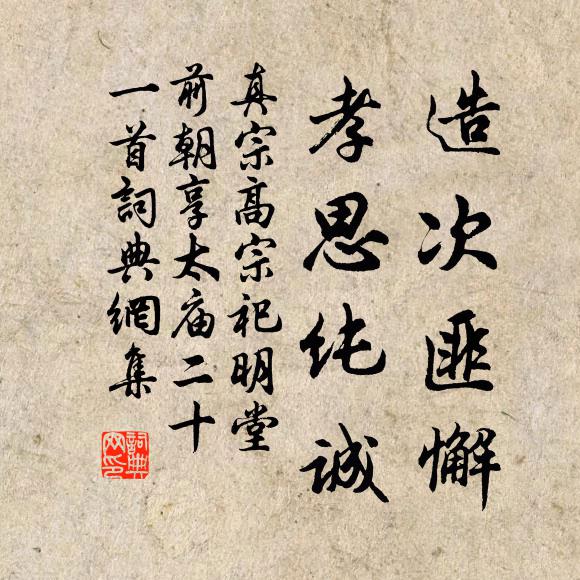 造次匪懈
孝思纯誠
真宗高宗祀明堂
前朝享太庙二十
一首詞典網集
詞典
网印